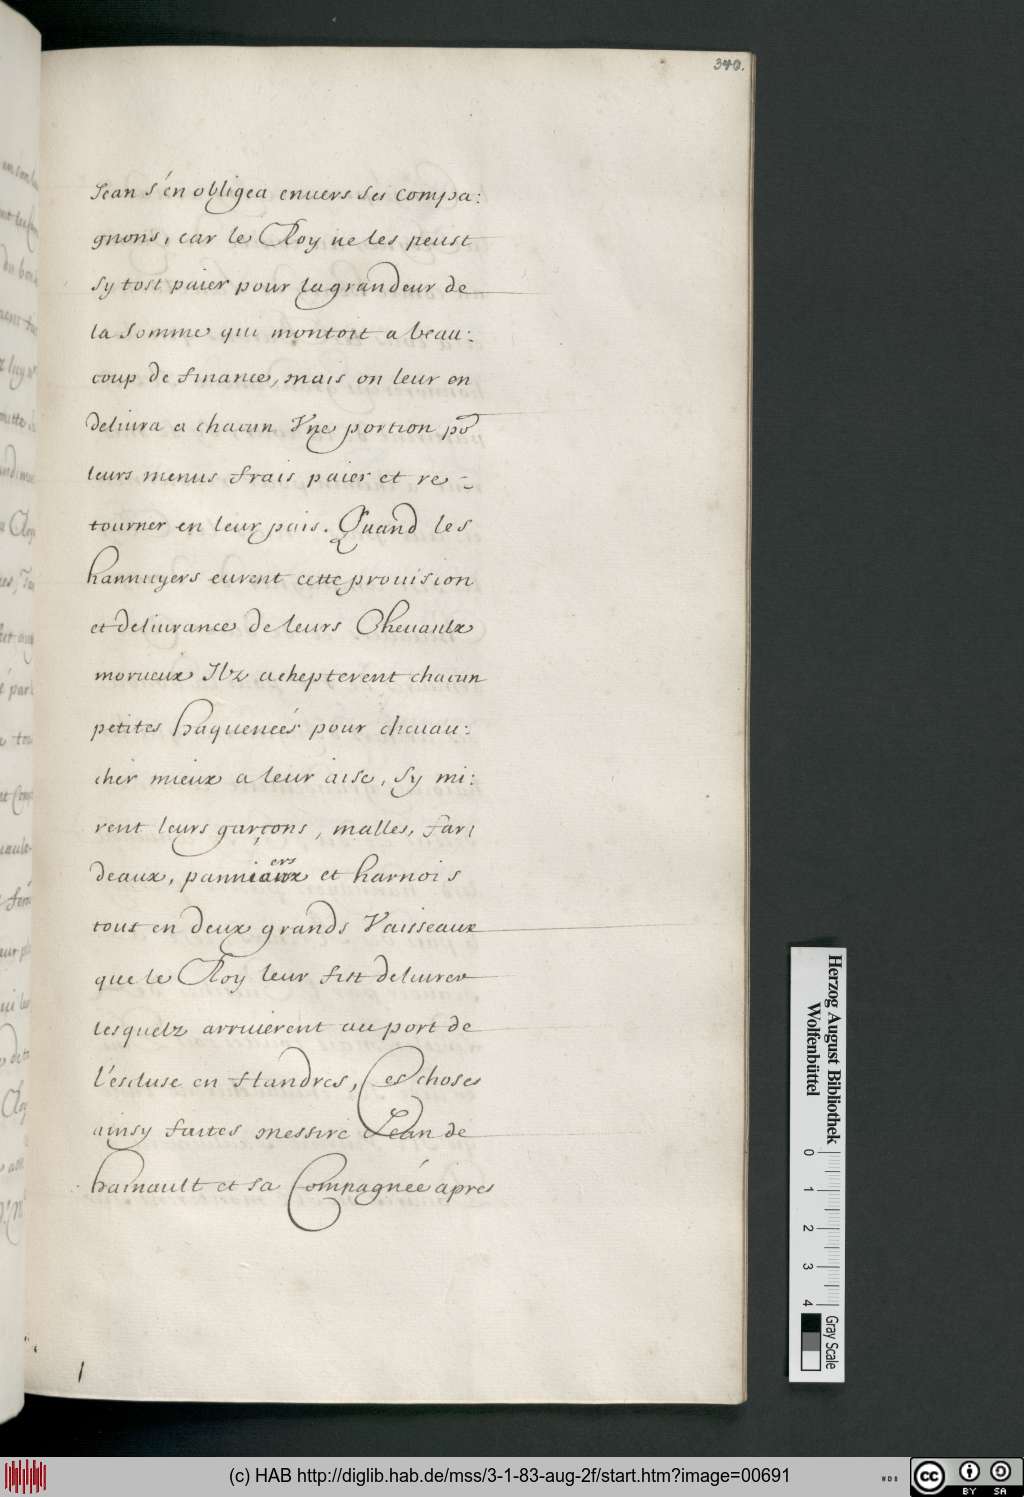 340.
Jean s'en obligea enuers ses compa:
gnons, car le Roy ne les peust
sy tost paier pour la grandeur de
la somme qui montoit a beau:
coup de finance, mais on leur en
deliura a chacun Vne portion po^r
leurs menus frais paier et re =
tourner en leur pais. Quand les
hannuyers eurent cette prouision
et deliurance de leurs Cheuaulx
morueux Ilz achepterent chacun
petites haquenées pour cheuau:
cher mieux a leur aise, sy mi:
rent leurs garçons, malles, far:
deaux, panniers et harnois
tout en deux grands Vaisseaux
que le Roy leur fist deliurer
lesquelz arriuerent au port de
l'escluse en flandres, Ces choses
ainsy faites messire Jean de
hainault et sa Compagnée apres
Herzog August Bibliothek
Wolfenbüttel
0 1 2 3 4
Gray Scale
(c) HAB http://diglib.hab.de/mss/3-1-83-aug-2f/start.htm?image=00691
WDB
cc BY SA